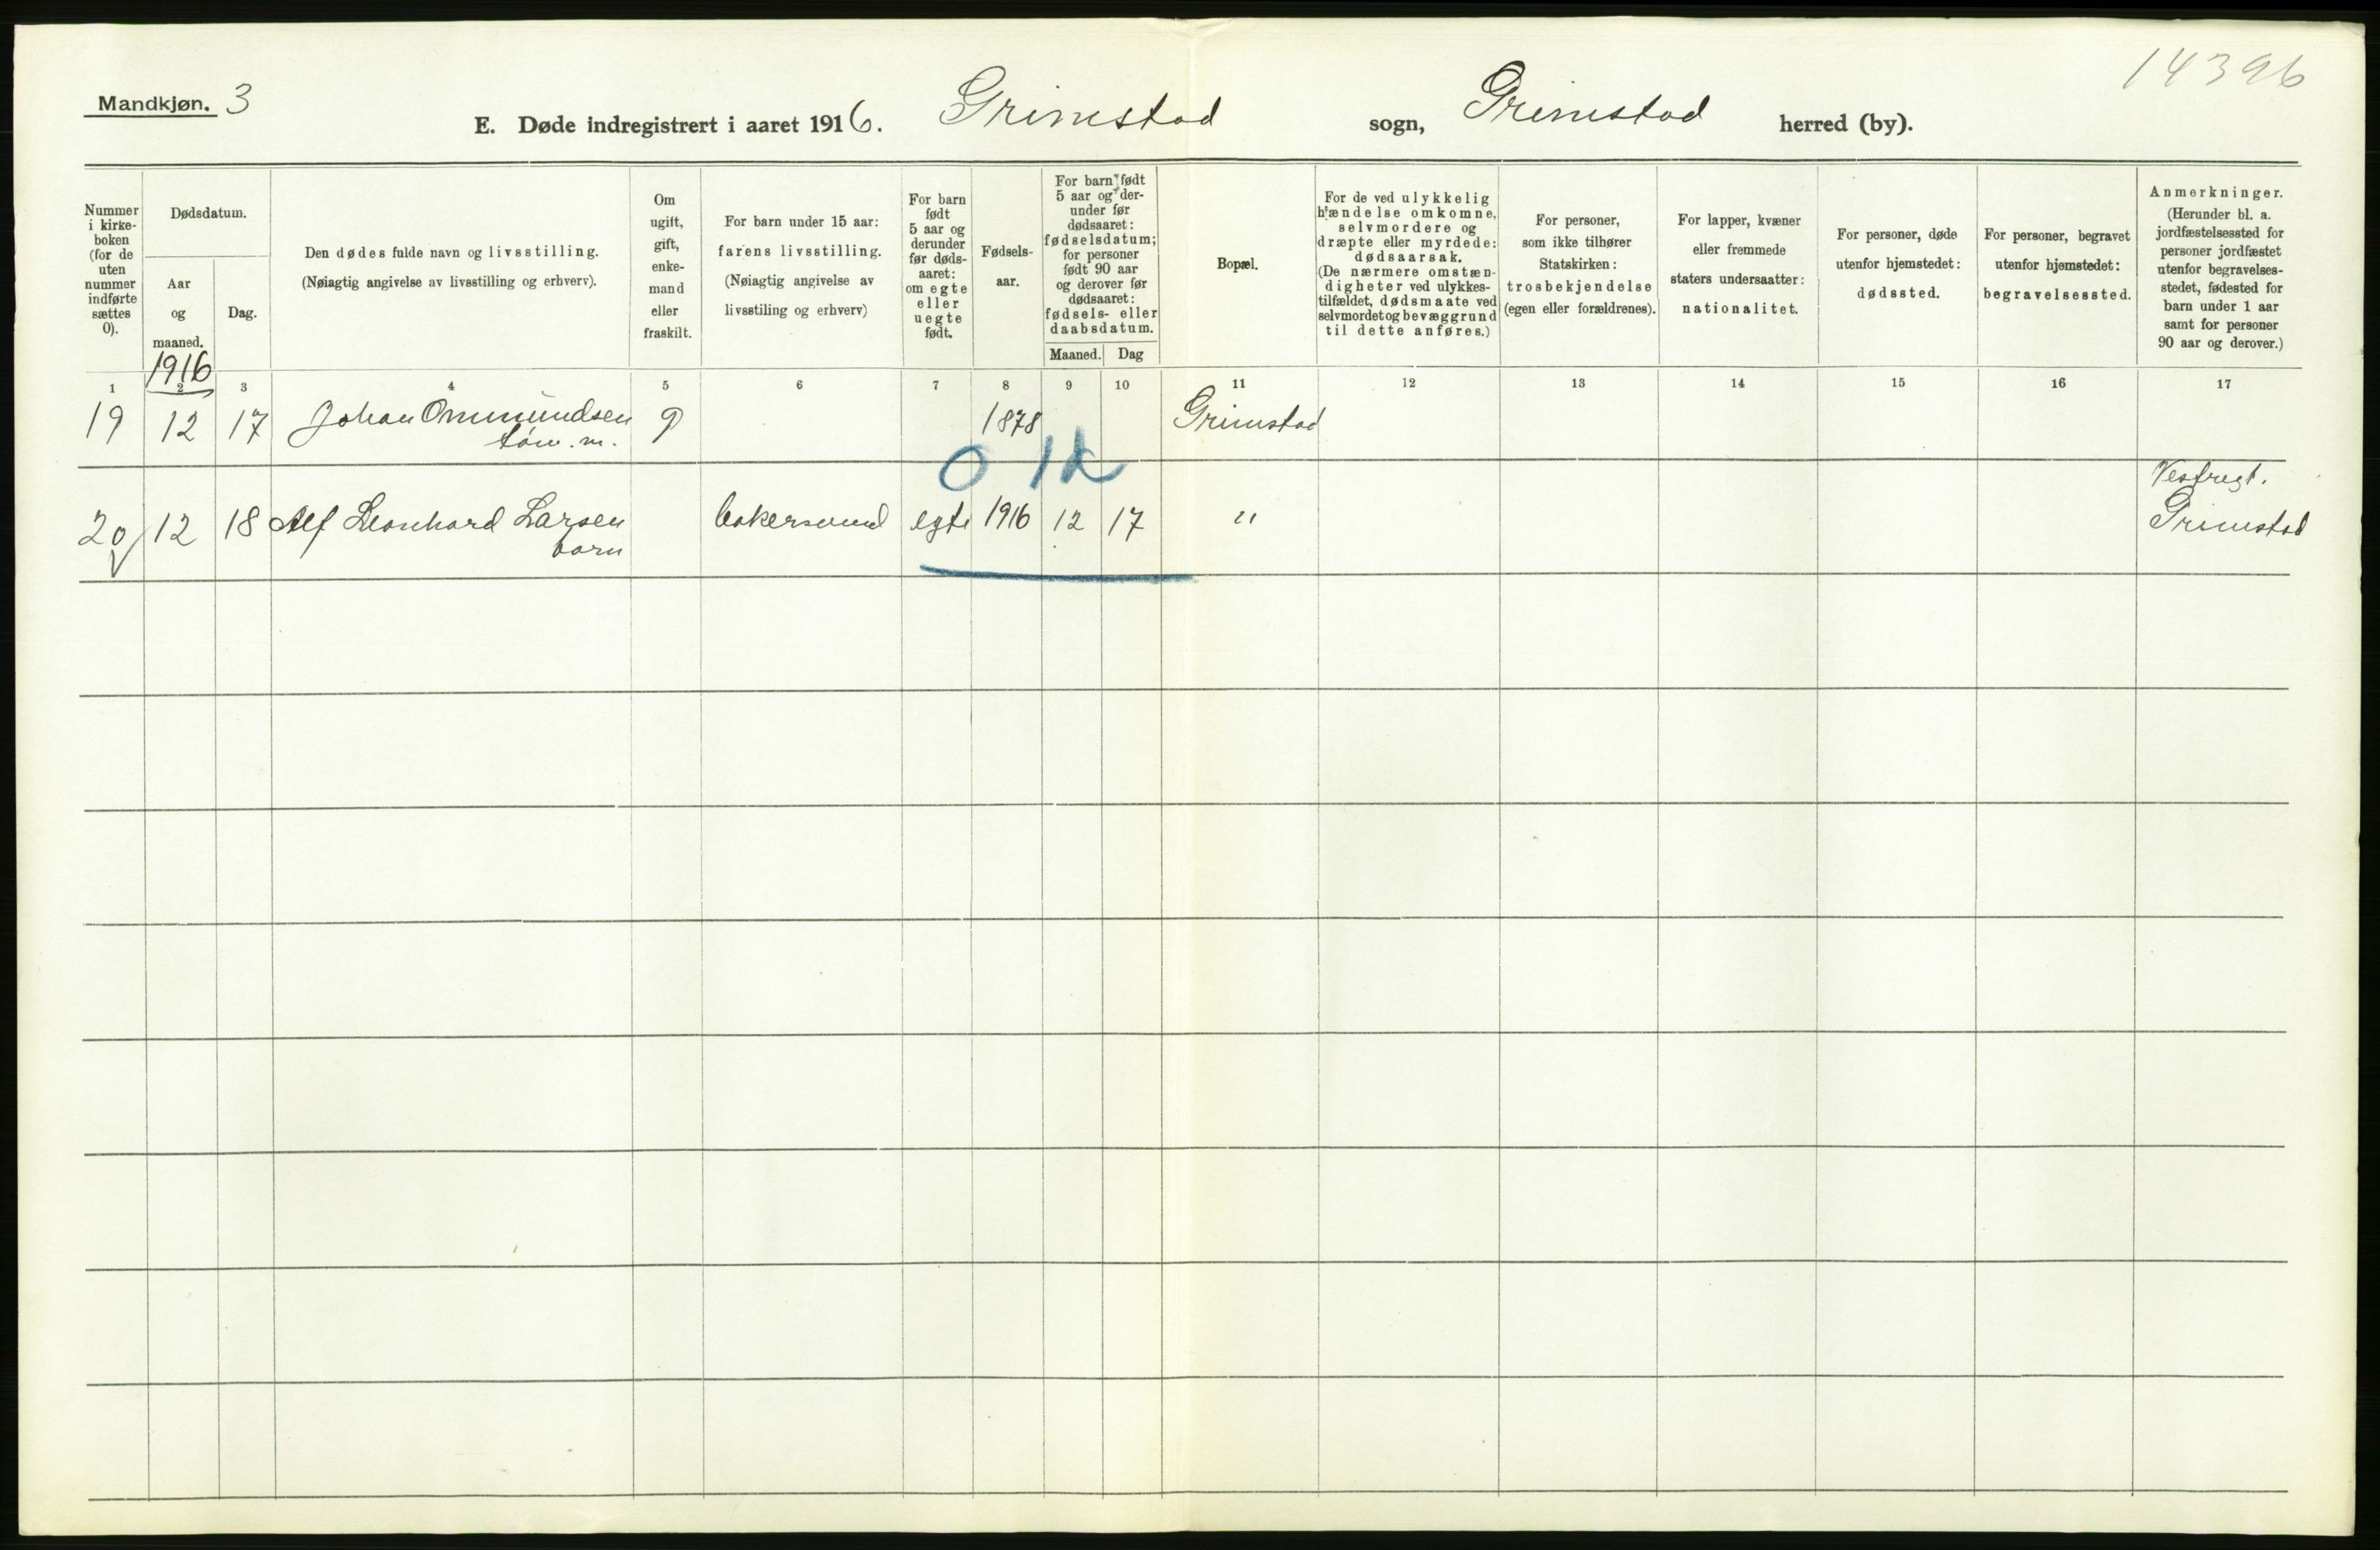 14396
Mandkjøn. 3
E. Døde indregistrert i aaret 1916. Grimstad sogn, Grimstad herred (by).
Nummer i kirke- boken (for de uten nummer indførte sættes 0).
Dødsdatum.
Aar og maaned.
Dag.
Den dødes fulde navn og livsstilling.
(Nøiagtig angivelse av livsstilling og erhverv).
Om ugift, gift, enke- mand eller fraskilt.
For barn under 15 aar:
farens livsstilling.
(Nøiagtig angivelse av
livsstiling og erhverv)
For barn født 5 aar og derunder før døds- aaret: om egte eller uegte født.
Fødsels- aar.
For barn født 5 aar og der- under før dødsaaret: fødselsdatum; for personer født 90 aar og derover før dødsaaret: fødsels- eller daabsdatum.
Maaned. Dag
Bopæl.
For de ved ulykkelig hændelse omkomne, selvmordere og dræpte eller myrdede: dødsaarsak. (De nærmere omstæn- digheter ved ulykkes- tilfældet, dødsmaate ved selvmordet og bevæggrund til dette anføres.)
For personer, som ikke tilhører Statskirken: trosbekjendelse (egen eller forældrenes).
For lapper, kvæner eller fremmede staters undersaatter: nationalitet.
For personer, døde utenfor hjemstedet: dødssted.
For personer, begravet utenfor hjemstedet: begravelsessted.
Anmerkninger. (Herunder bl. a. jordfæstelsessted for personer jordfæstet utenfor begravelses- stedet, fødested for barn under 1 aar samt for personer 90 aar og derover.)
1916
1 2 3 4 5 6 7 8 9 10 11 12 13 14 15 16 17
19 12 17 Johan Ommundsen g 1878 Grimstad
tøm.m.
0 1d
Vestregt.
20 12 18 Alf Leonhard Larsen bakersvend egte 1916 12 17 " Grimstad
barn